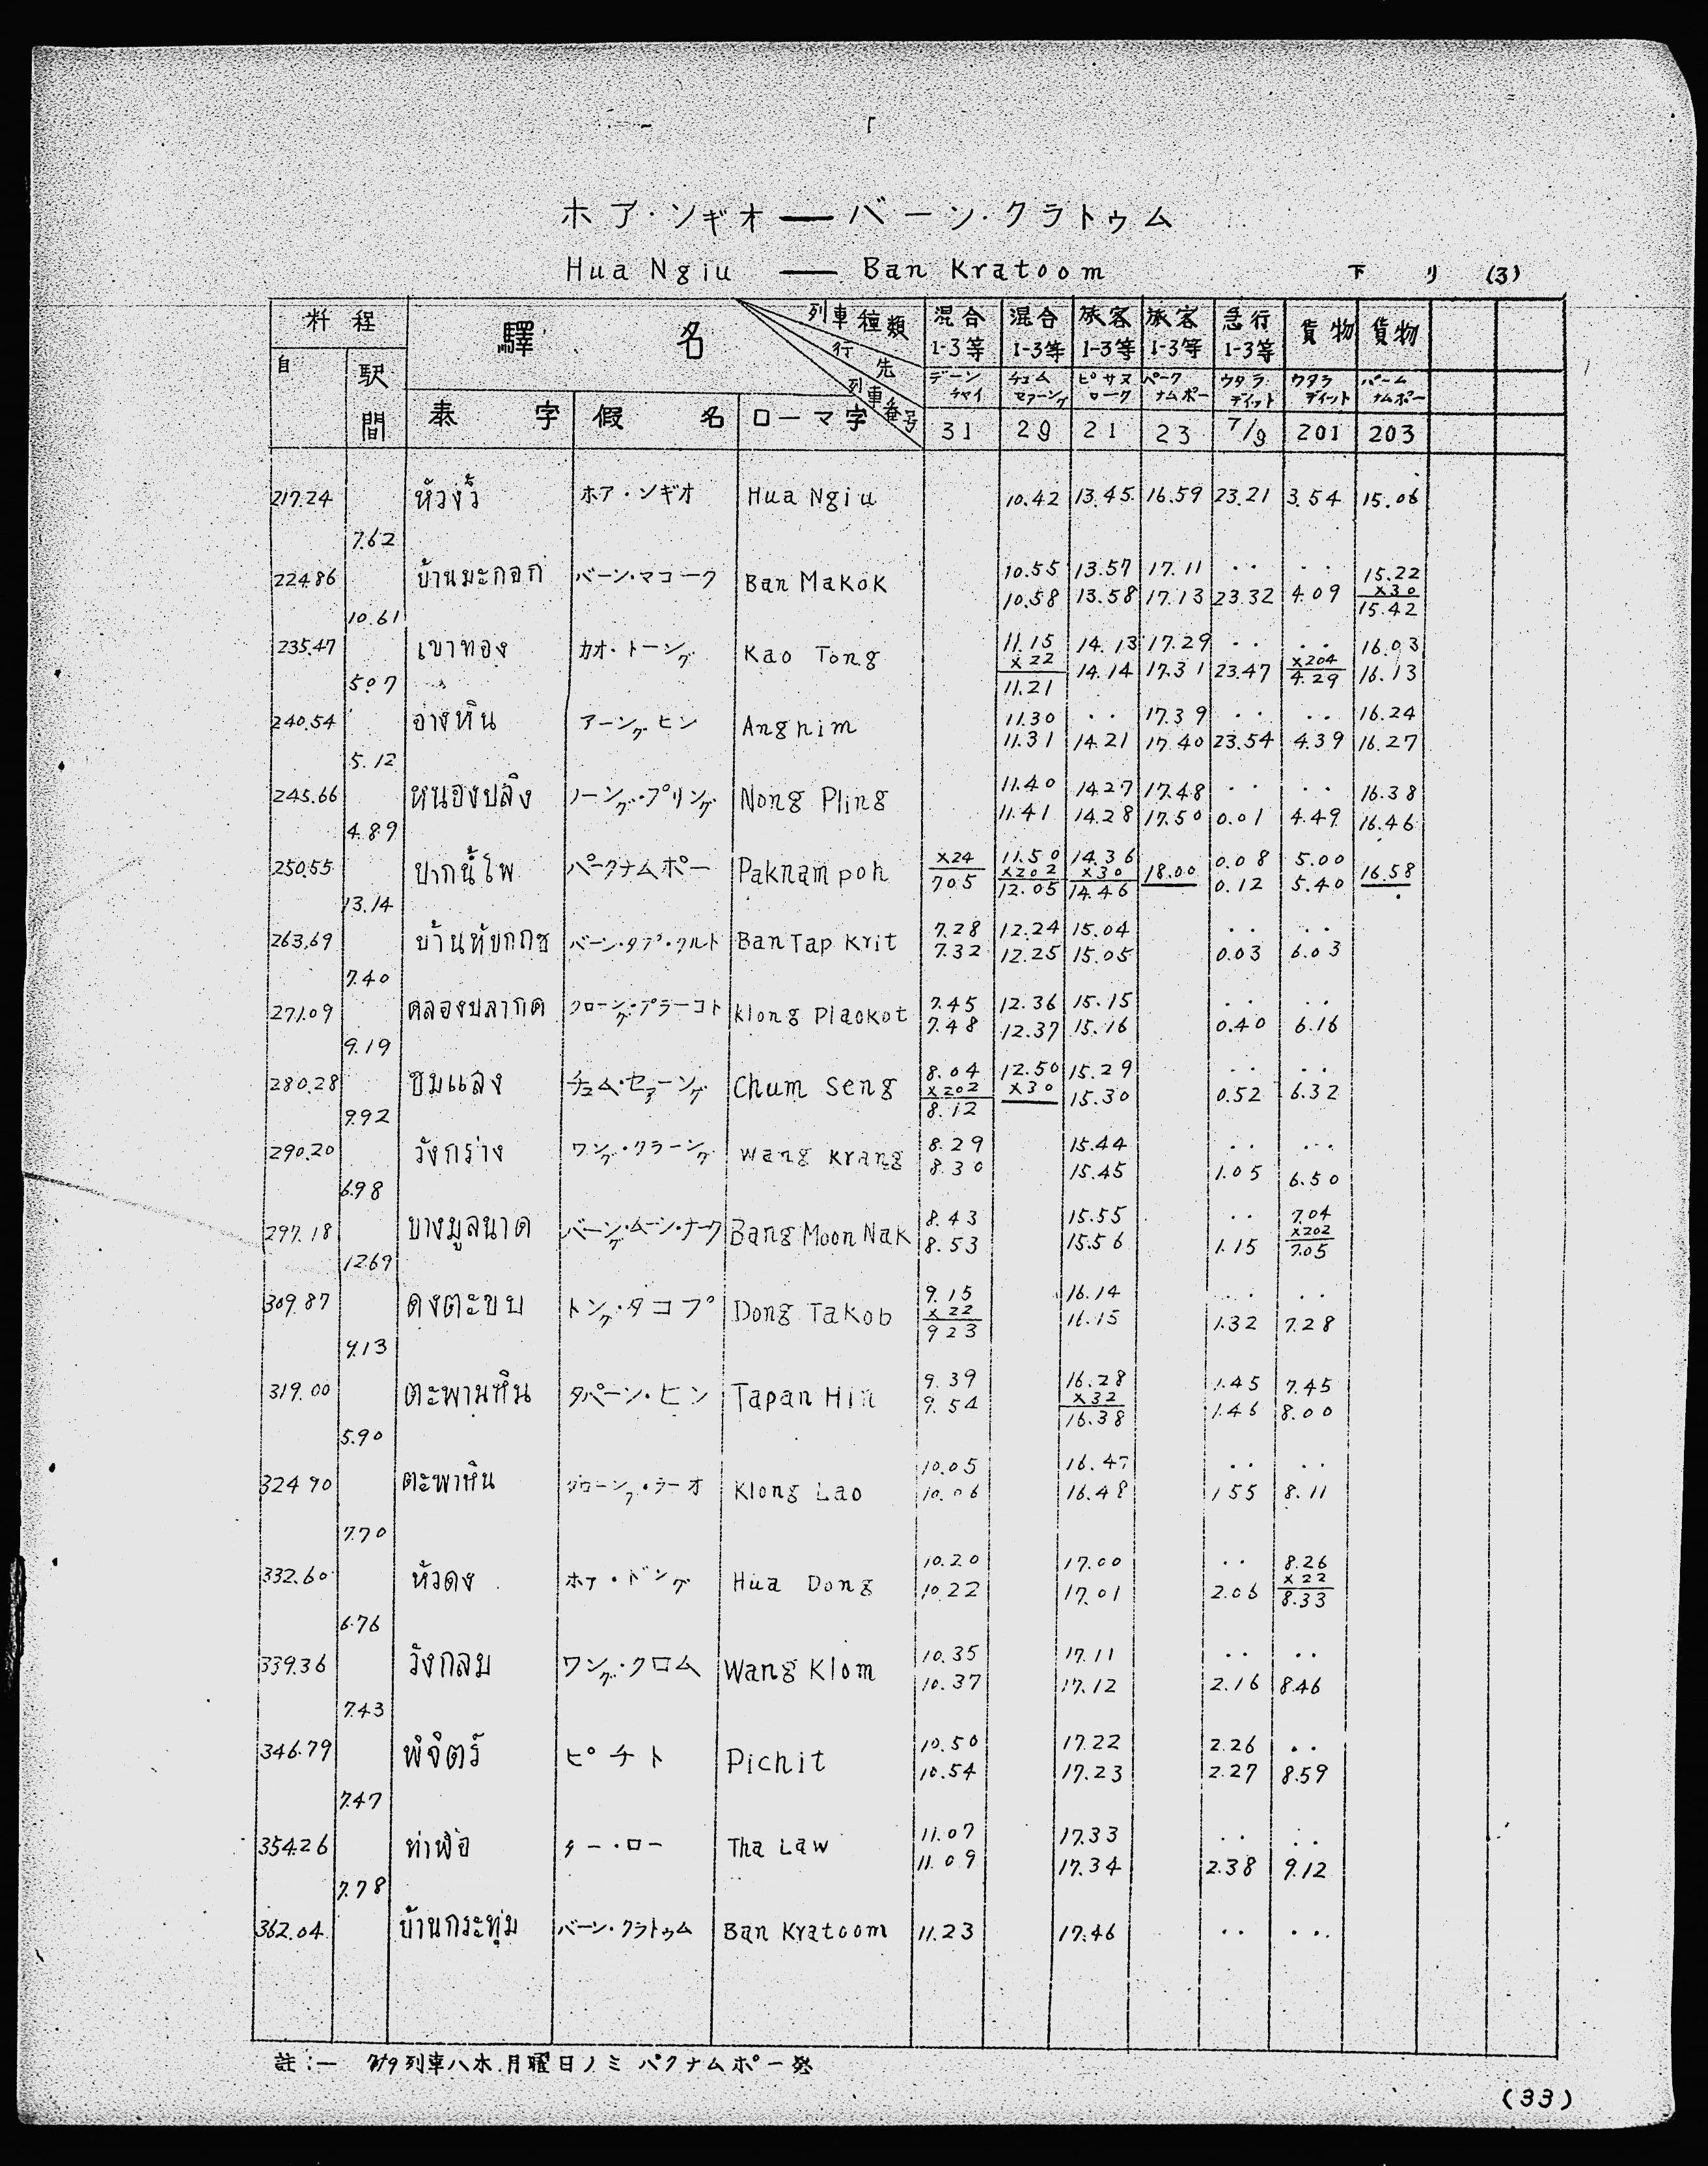 ホア・ンギオ — バーン・クラトゥム
Hua Ngiu — Ban Kratoom 下リ (3)
粁程 驛名 列車種類 混合 混合 旅客 旅客 急行 貨物 貨物
1-3等 1-3等 1-3等 1-3等 1-3等
自 駅間 行先 デーンチャイ チュムセアーング ピサヌローク パークナムポー ウタラディット ウタラディット パームナムポー
泰字 假名 ローマ字 列車番号 31 29 21 23 7/9 201 203
217.24 หัวงิ้ว ホア・ンギオ Hua Ngiu 10.42 13.45 16.59 23.21 3.54 15.06
7.62
224.86 บ้านมะกอก バーン・マコーク Ban Makok 10.55 13.57 17.11 ・・ ・・ 15.22
10.58 13.58 17.13 23.32 4.09 X30 15.42
10.61
235.47 เขาทอง カオ・トーング Kao Tong 11.15 14.13 17.29 ・・ ・・ 16.03
X22 11.21 14.14 17.31 23.47 X204 4.29 16.13
5.07
240.54 อ่างหิน アーング ヒン Anghim 11.30 ・・ 17.39 ・・ ・・ 16.24
11.31 14.21 17.40 23.54 4.39 16.27
5.12
245.66 หนองปลิง ノーング・プリング Nong Pling 11.40 14.27 17.48 ・・ ・・ 16.38
11.41 14.28 17.50 0.01 4.49 16.46
4.89
250.55 ปากน้ำโพ パークナムポー Paknampoh X24 11.50 14.36 18.00 0.08 5.00 16.58
7.05 X202 12.05 X30 14.46 0.12 5.40
13.14
263.69 บ้านทับกฤช バーン・タプ・クルト Ban Tap Krit 7.28 12.24 15.04 ・・ ・・
7.32 12.25 15.05 0.03 6.03
7.40
271.09 คลองปลากด クローング・プラーコト Klong Plackot 7.45 12.36 15.15 ・・ ・・
7.48 12.37 15.16 0.40 6.16
9.19
280.28 ชุมแสง チュム・セアーング Chum Seng 8.04 12.50 15.29 ・・ ・・
X202 8.12 X30 15.30 0.52 6.32
9.92
290.20 วังกร่าง ワング・クラーング Wang Krang 8.29 15.44 ・・ ・・
8.30 15.45 1.05 6.50
6.98
297.18 บางมูลนาค バーング・ムーン・ナーク Bang Moon Nak 8.43 15.55 ・・ 7.04
8.53 15.56 1.15 X202 7.05
12.69
309.87 ดงตะขบ トング・タコプ Dong Takob 9.15 16.14 ・・ ・・
X22 9.23 16.15 1.32 7.28
9.13
319.00 ตะพานหิน タパーン・ヒン Tapan Hin 9.39 16.28 1.45 7.45
9.54 X32 16.38 1.46 8.00
5.90
324.90 ตะพาหิน クローング・ラーオ Klong Lao 10.05 16.47 ・・ ・・
10.06 16.48 1.55 8.11
7.70
332.60 หัวดง ホア・ドング Hua Dong 10.20 17.00 ・・ 8.26
10.22 17.01 2.06 X22 8.33
6.76
339.36 วังกลม ワング・クロム Wang Klom 10.35 17.11 ・・ ・・
10.37 17.12 2.16 8.46
7.43
346.79 พิจิตร์ ピチト Pichit 10.50 17.22 2.26 ・・
10.54 17.23 2.27 8.59
7.47
354.26 ท่าฬ่อ ター・ロー Tha Law 11.07 17.33 ・・ ・・
11.09 17.34 2.38 9.12
7.78
362.04 บ้านกระทุ่ม バーン・クラトゥム Ban Kratoom 11.23 17.46 ・・ ・・
註:— 7/9列車ハ木.月曜日ノミ パクナムポー発
(33)